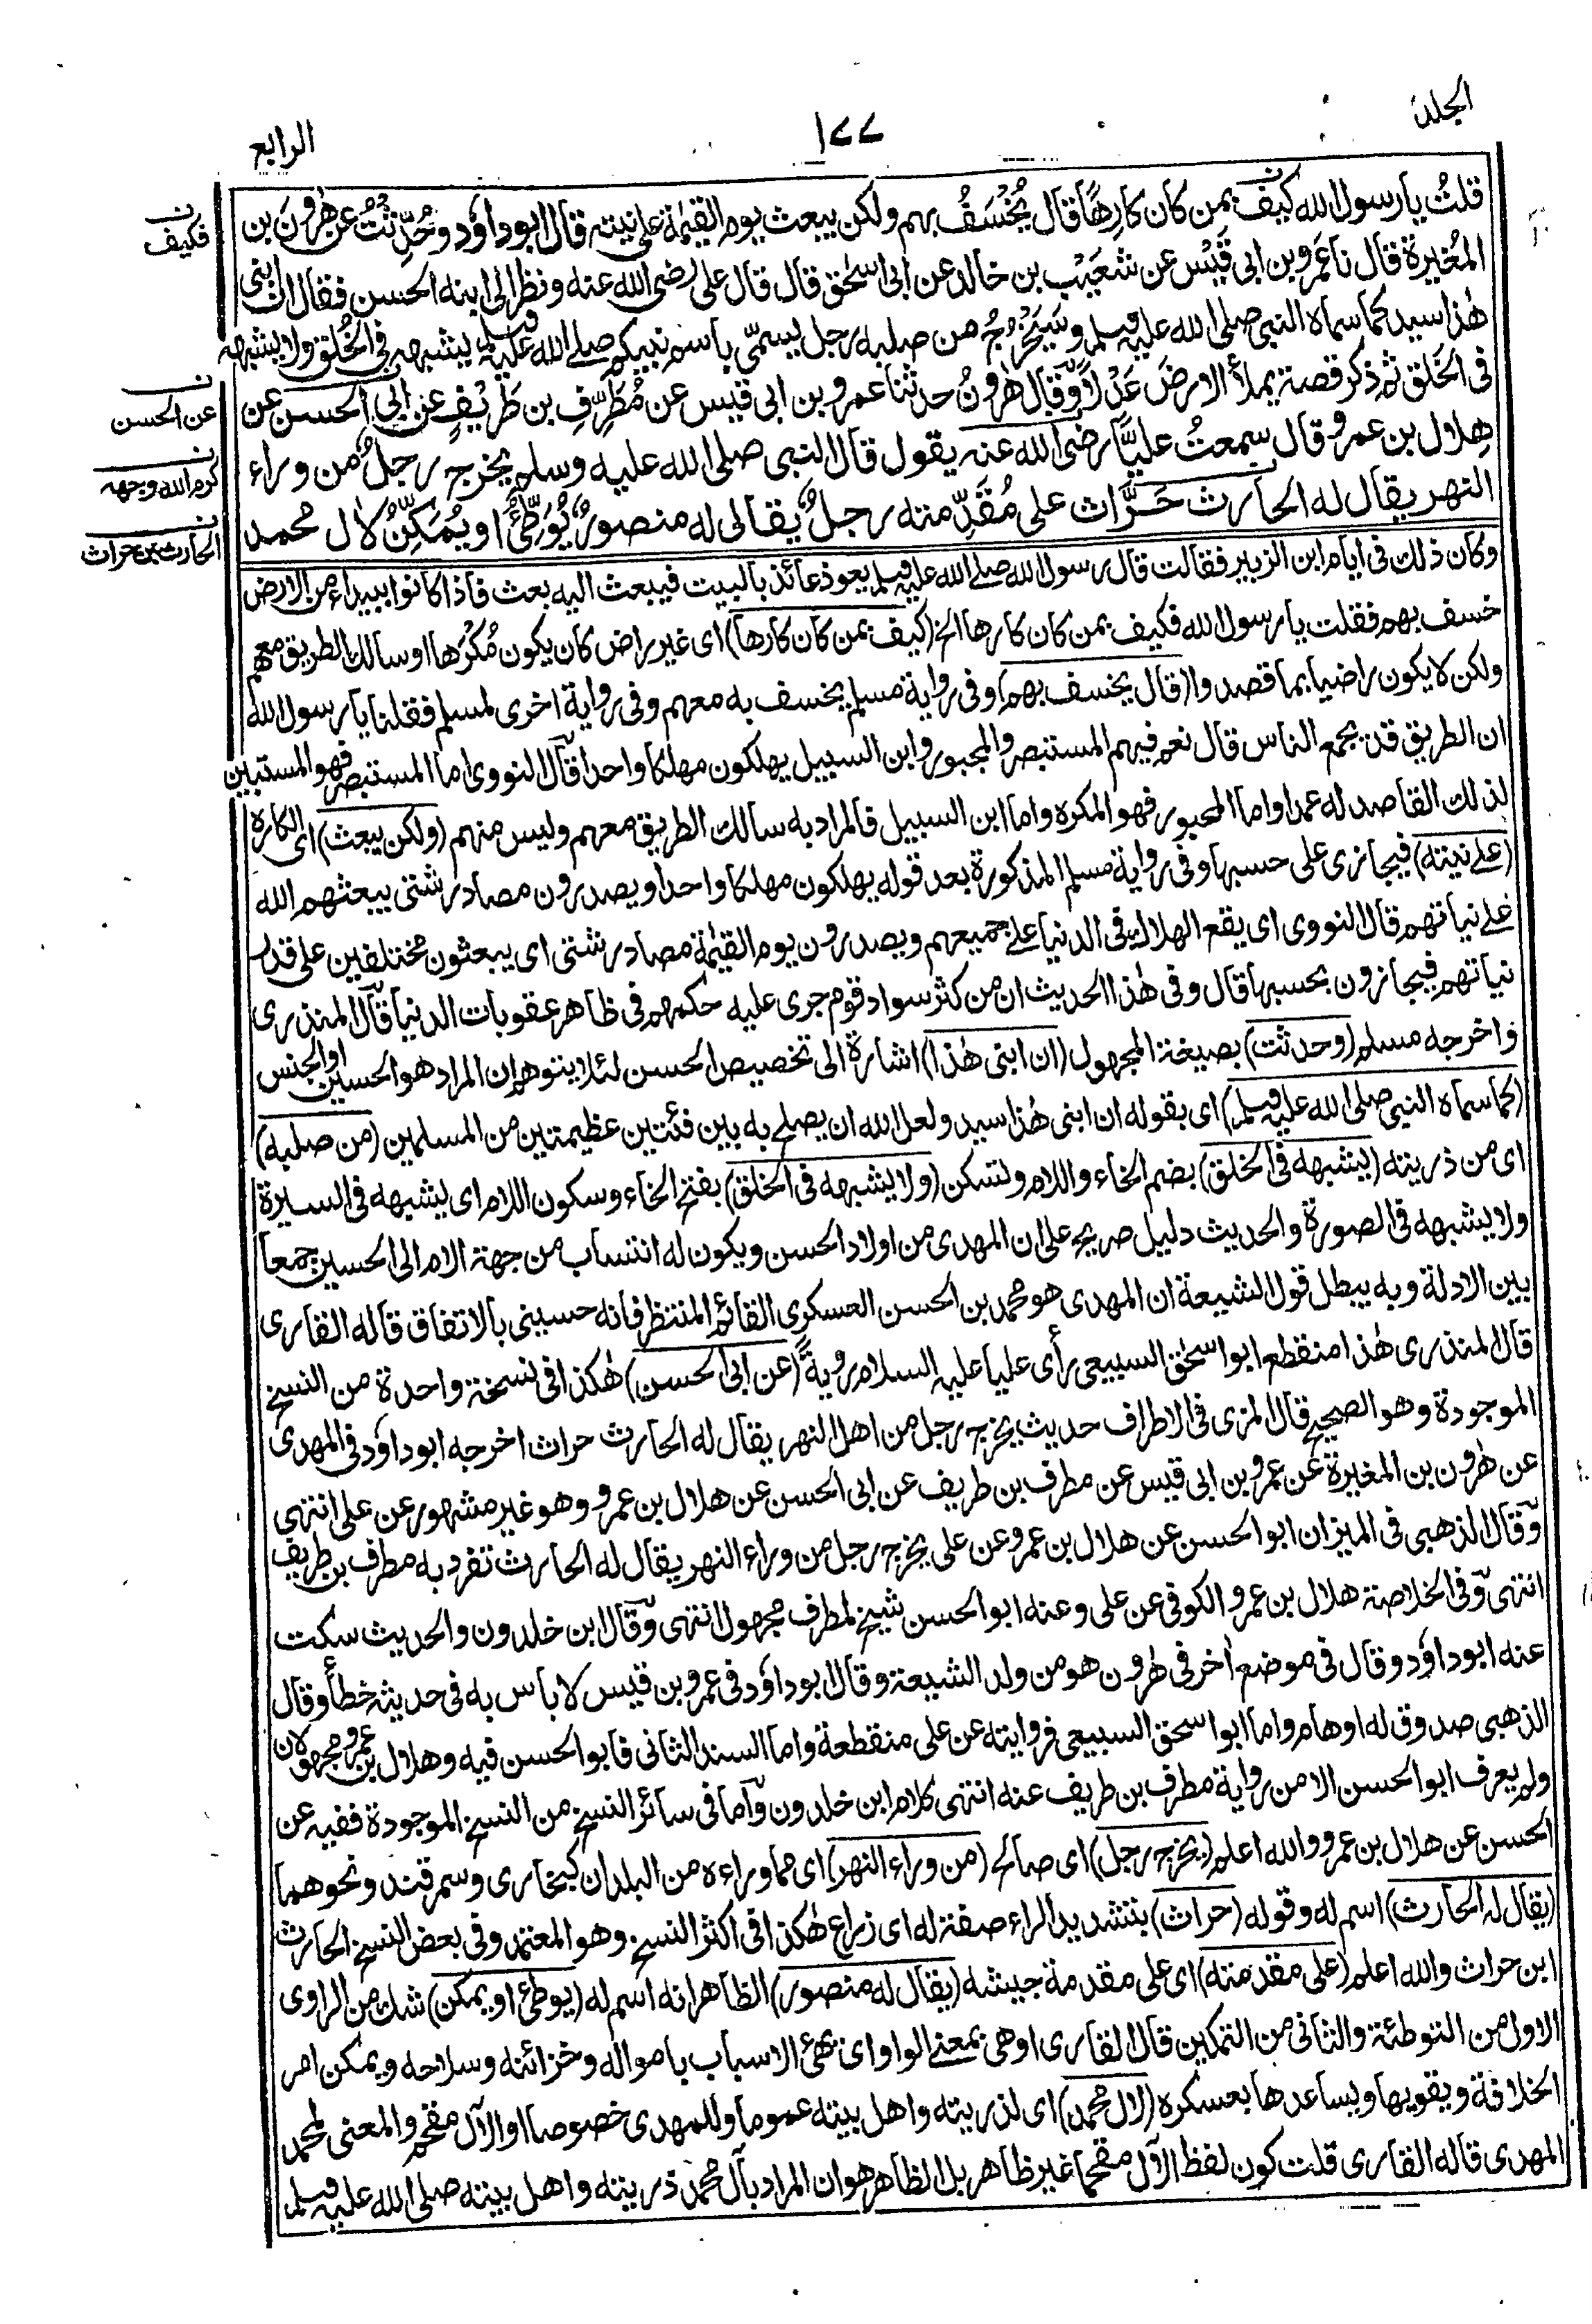 الجلد
١٧٧
الرابع
قلتُ يا رسول الله كيف بمن كان كارِهًا قال يُخْسَفُ بهم ولكن يبعث يوم القيٰمة على نيته قال ابو داؤد وحُدِّثتُ عن هٰرونَ بن
المُغيرة قال نا عَمرو بن ابى قَيْس عن شعَيْب بن خالد عن ابى اسحٰق قال قال على رضى الله عنه ونظر الى ابنه الحسن فقال ان ابنى
هٰذا سيد كما سماه النبى صلى الله عليه وسلم وسَيَخْرُجُ من صلبه رجل يسمّى باسم نبيكم صلے الله عليه وسلم يشبهه فى الخُلق ولا يشبهه
فى الخَلق ثم ذكر قصة يملأ الارضَ عَدْلًا وَّقال هٰرونُ حدثنا عمرو بن ابى قيس عن مُطَرِّفِ بن طَرِيْفٍ عن ابى الحسن عن
هِلال بن عمرو قال سمعتُ عليًّا رضى الله عنه يقول قال النبى صلى الله عليه وسلم يخرج رجلٌ من وراء
النهر يقال له الحارث حَرَّاث على مُقَدِّمته رجلٌ يقالى له منصور يُوَطِّئُ او يُمَكِّنُ لاٰل محمد
فكيف
عن الحسن
كرم الله وجهه
الحارث بن حراث
وكان ذلك فى ايام ابن الزبير فقالت قال رسول الله صلے الله عليه وسلم يعوذ عائذ بالبيت فيبعث اليه بعث فاذا كانوا ببيداء من الارض
خسف بهم فقلت يا رسول الله فكيف بمن كان كارها الخ (كيف بمن كان كارها) اى غير راض كان يكون مُكْرَها او سالك الطريق معهم
ولكن لا يكون راضيا بما قصدوا (قال يخسف بهم) وفى رواية مسلم يخسف به معهم وفى رواية اخرى لمسلم فقلنا يا رسول الله
ان الطريق قد يجمع الناس قال نعم فيهم المستبصر والمجبور وابن السبيل يهلكون مهلكا واحدا قال النووى اما المستبصر فهو المستبين
لذلك القاصد له عمدا واما المجبور فهو المكره واما ابن السبيل فالمراد به سالك الطريق معهم وليس منهم (ولكن يبعث) اى الكاره
(علے نيته) فيجازى على حسبها وفى رواية مسلم المذكورة بعد قوله يهلكون مهلكا واحدا ويصدرون مصادر شتى يبعثهم الله
علے نياتهم قال النووى اى يقع الهلاك فى الدنيا علے جميعهم ويصدرون يوم القيٰمة مصادر شتى اى يبعثون مختلفين على قدر
نياتهم فيجازون بحسبها قال وفى هٰذا الحديث ان من كثر سواد قوم جرى عليه حكمهم فى ظاهر عقوبات الدنيا قال المنذرى
واخرجه مسلم (وحدثت) بصيغة المجهول (ان ابنى هٰذا) اشارة الى تخصيص الحسن لئلا يتوهم ان المراد هو الحسين او الجنس
(كما سماه النبى صلى الله عليه وسلم) اى بقوله ان ابنى هٰذا سيد ولعل الله ان يصلح به بين فئتين عظيمتين من المسلمين (من صلبه)
اى من ذريته (يشبهه فى الخلق) بضم الخاء واللام وتسكن (ولا يشبهه فى الخلق) بفتح الخاء وسكون اللام اى يشبهه فى السيرة
ولا يشبهه فى الصورة والحديث دليل صريح على ان المهدى من اولاد الحسن ويكون له انتساب من جهة الام الى الحسين جمعا
بين الادلة وبه يبطل قول الشيعة ان المهدى هو محمد بن الحسن العسكرى القائم المنتظر فانه حسينى بالاتفاق قاله القارى
قال المنذرى هٰذا منقطع ابو اسحٰق السبيعى رأى عليا عليه السلام رويةً (عن ابى الحسن) هٰكذا فى نسخة واحدة من النسخ
الموجودة وهو الصحيح قال المزى فى الاطراف حديث يخرج رجل من اهل النهر يقال له الحارث حراث اخرجه ابو داؤد فى المهدى
عن هٰرون بن المغيرة عن عمرو بن ابى قيس عن مطرف بن طريف عن ابى الحسن عن هلال بن عمرو وهو غير مشهور عن على انتهى
وقال الذهبى فى الميزان ابو الحسن عن هلال بن عمرو عن على يخرج رجل من وراء النهر يقال له الحارث تفرد به مطرف بن طريف
انتهى وفى الخلاصة هلال بن عمرو الكوفى عن على وعنه ابو الحسن شيخ لمطرف مجهول انتهى وقال ابن خلدون والحديث سكت
عنه ابو داؤد وقال فى موضع اٰخر فى هٰرون هو من ولد الشيعة وقال ابو داؤد فى عمرو بن قيس لا باس به فى حديثه خطأ وقال
الذهبى صدوق له اوهام واما ابو اسحق السبيعى فروايته عن على منقطعة واما السند الثانى فابو الحسن فيه وهلال بن عمرو مجهولان
ولم يعرف ابو الحسن الا من رواية مطرف بن طريف عنه انتهى كلام ابن خلدون واما فى سائر النسخ من النسخ الموجودة ففيه عن
الحسن عن هلال بن عمرو والله اعلم (يخرج رجل) اى صالح (من وراء النهر) اى مما وراءه من البلدان كبخارى وسمرقند ونحوهما
(يقال له الحارث) اسم له وقوله (حراث) بتشديد الراء صفة له اى زراع هٰكذا فى اكثر النسخ وهو المعتمد وفى بعض النسخ الحارث
ابن حراث والله اعلم (على مقدمته) اى على مقدمة جيشه (يقال له منصور) الظاهر انه اسم له (يوطئ او يمكن) شك من الراوى
الاول من التوطئة والثانى من التمكين قال القارى او هى بمعنے الواو اى يهئ الاسباب باموالـه وخزائنه وسلاحه ويمكن امر
الخلافة ويقويها ويساعدها بعسكره (لاٰل محمد) اى لذريته واهل بيته عموما وللمهدى خصوصا او الاٰل مقحم والمعنى لمحمد
المهدى قاله القارى قلت كون لفظ الاٰل مقحما غير ظاهر بل الظاهر هو ان المراد بآل محمد ذريته واهل بيته صلى الله عليه وسلم